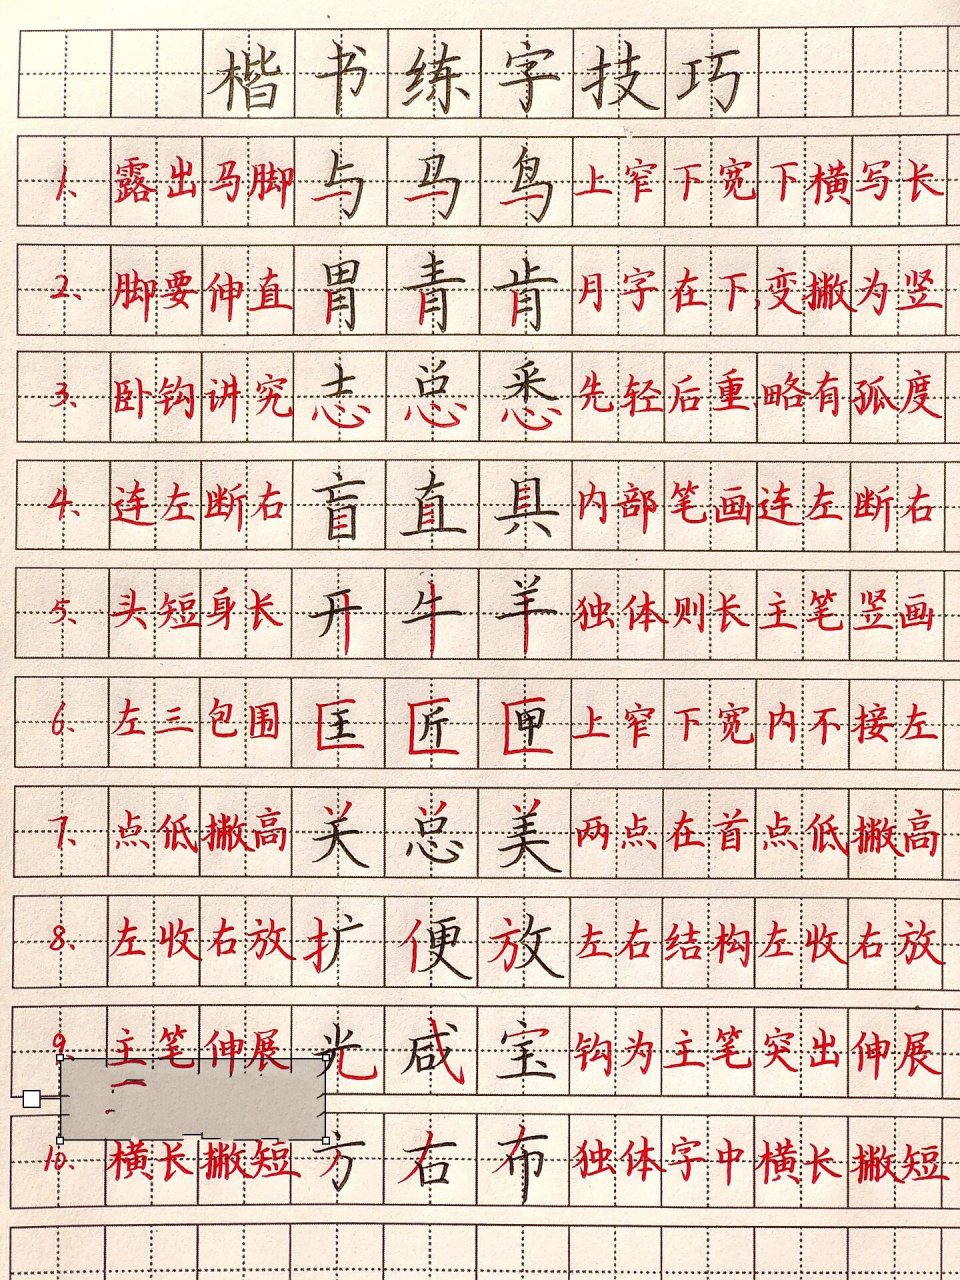 楷书练字技巧
1、露出马脚 与马鸟 上窄下宽下横写长
2、脚要伸直 胃青肯 月字在下,变撇为竖
3、卧钩讲究 志总悉 先轻后重略有孤度
4、连左断右 盲直具 内部笔画连左断右
5、头短身长 开牛羊 独体则长主笔竖画
6、左三包围 匡匠匣 上窄下宽内不接左
7、点低撇高 关总美 两点在首点低撇高
8、左收右放 扩便放 左右结构左收右放
9、主笔伸展 光咸宝 钩为主笔突出伸展
10、横长撇短 方右布 独体字中横长撇短